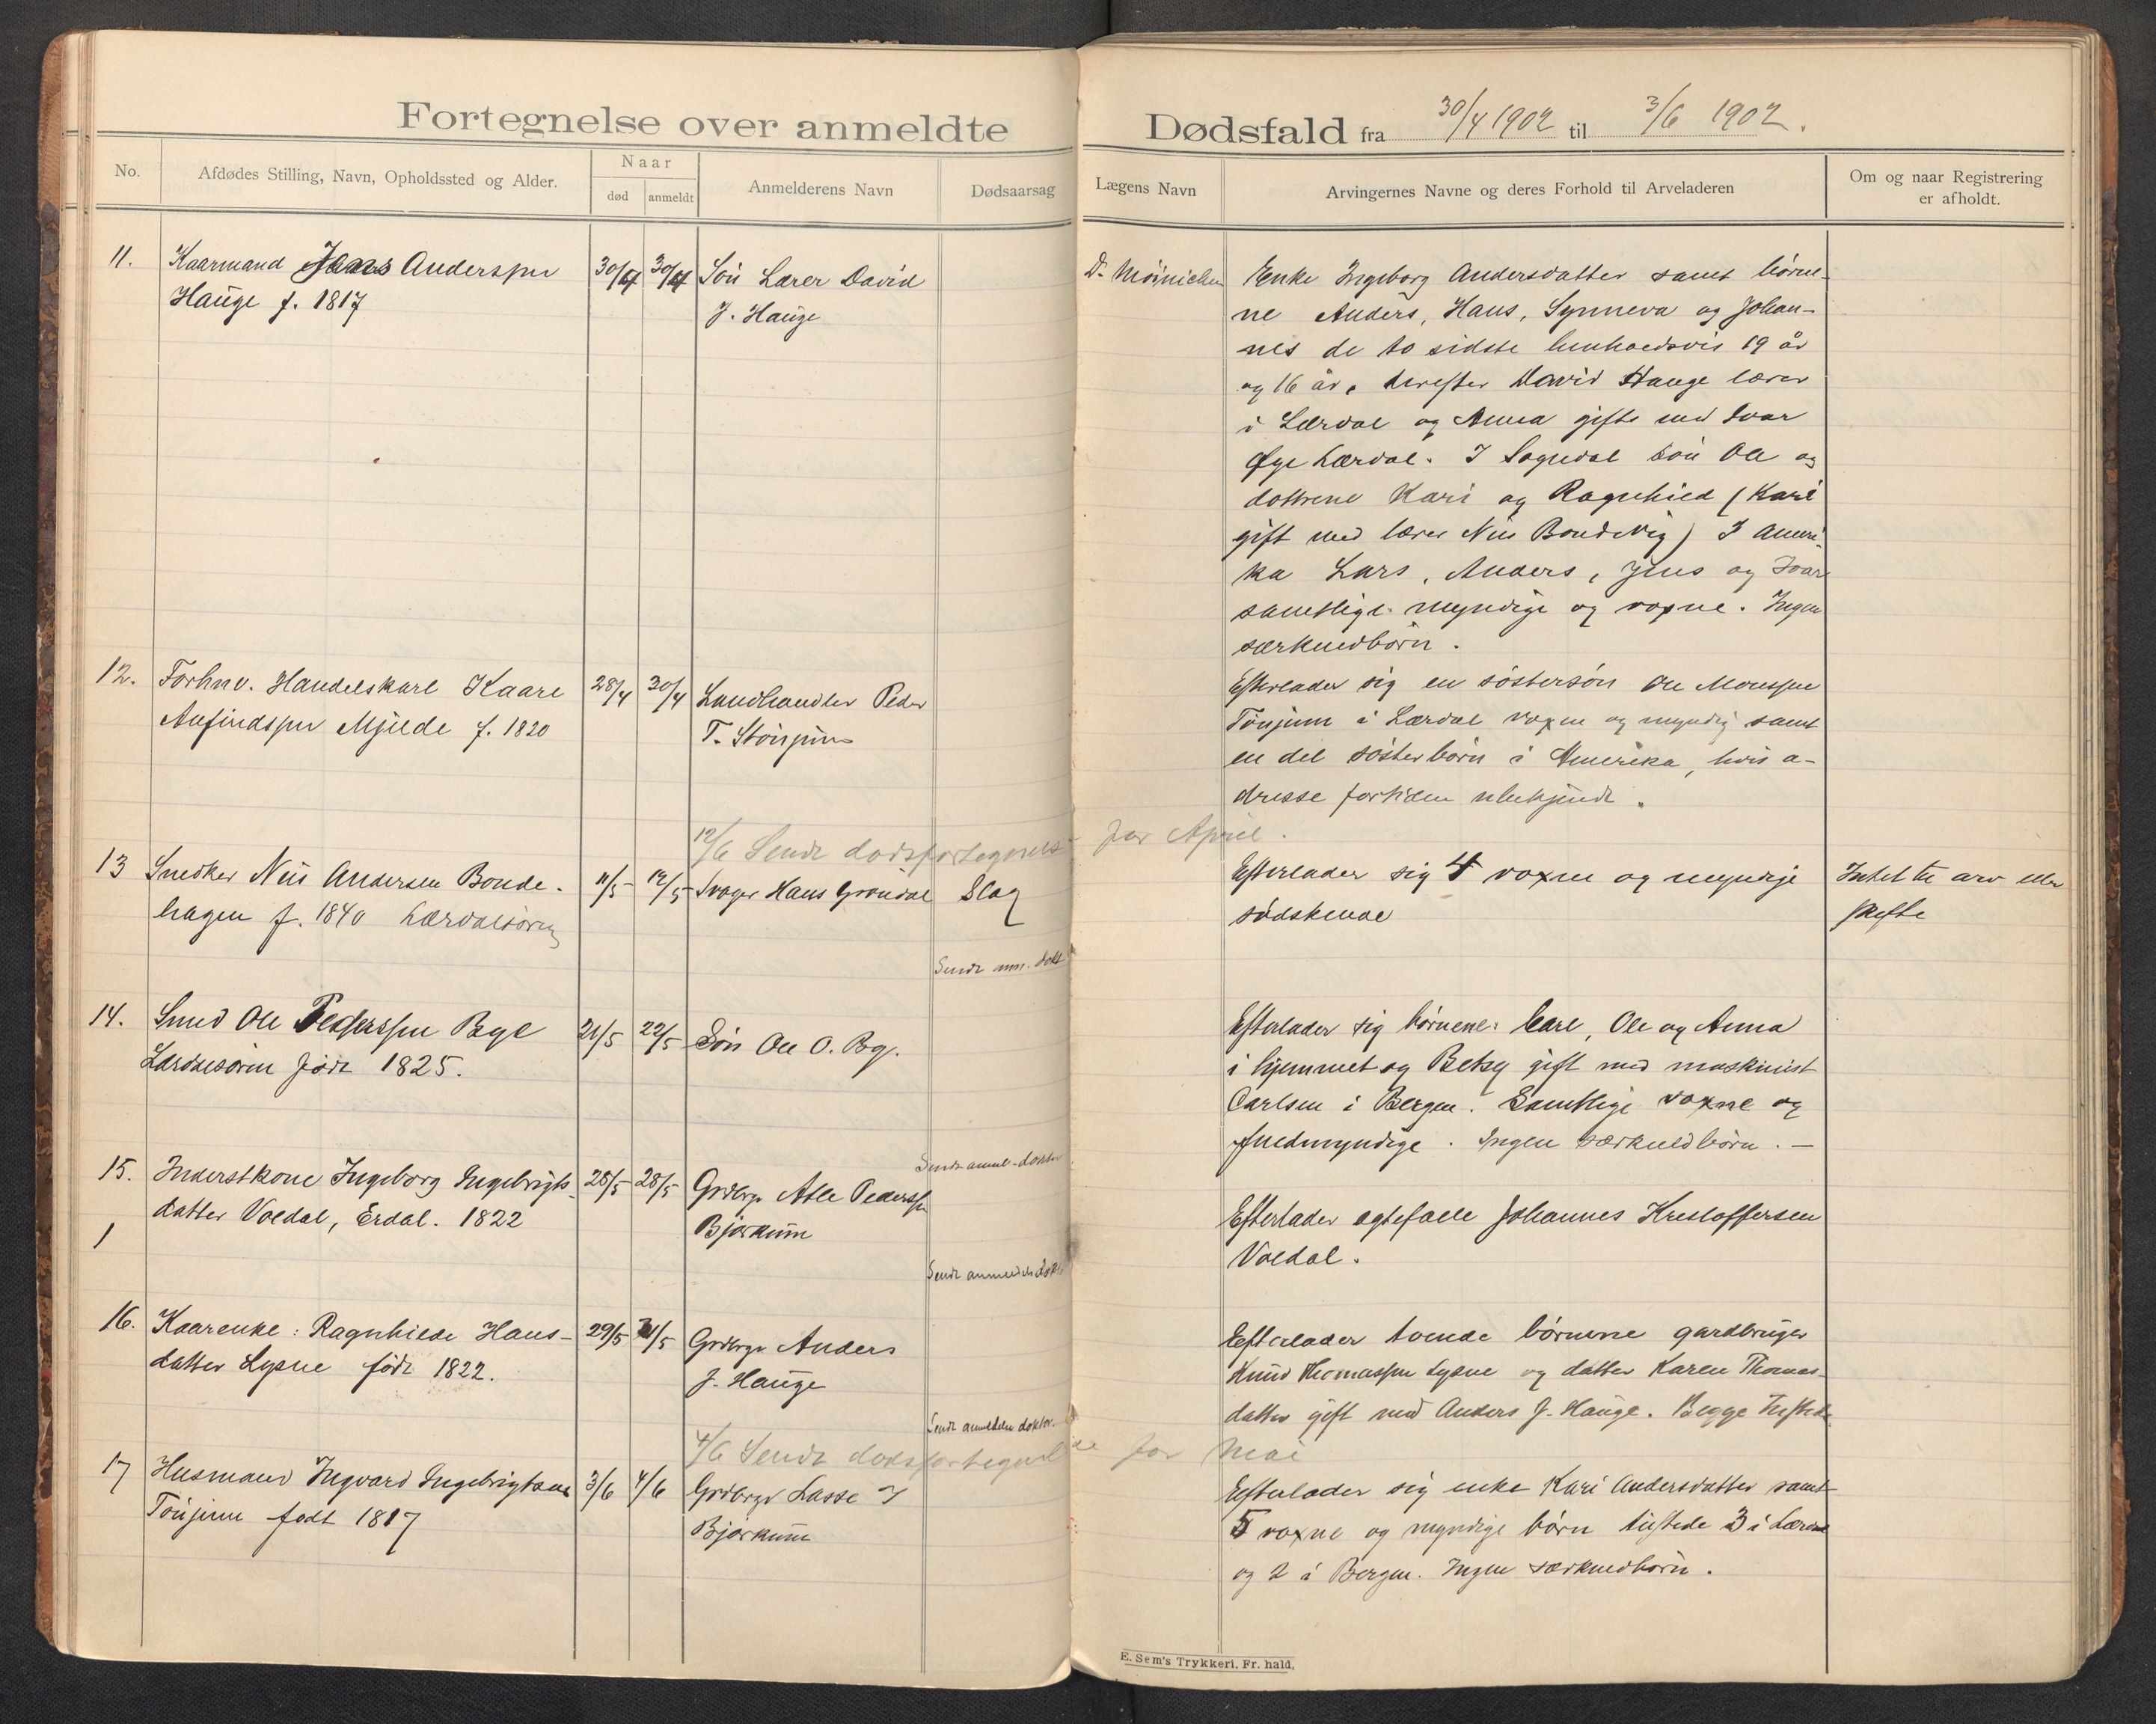 Fortegnelse over anmeldte Dødsfald fra 30/4 1902 til 3/6 1902.
No.
Afdødes Stilling, Navn, Opholdssted og Alder.
Naar
død
anmeldt
Anmelderens Navn
Dødsaarsag
Lægens Navn
Arvingernes Navne og deres Forhold til Arveladeren
Om og naar Registrering
er afholdt.
11.
Kaarmand Jens Anderssen
Hauge f. 1817
30/4
30/4
Sön Lærer David
J. Hauge
D.
Enke Ingeborg Andersdatter samt börne-
ne Anders, Hans, Synneva og Johan-
nes de to sidste henholdsvis 19 år
og 16 år, derefter David Hauge lærer
i Lærdal og Anna gift med Ivar
Øye Lærdal. I Sogndal sön Ole og
dottrene Kari og Ragnhild (Kari
gift med lærer Nils Bondevig) I Ameri-
ka Lars, Anders, Jens og Ivar
samtlige myndige og voxne. Ingen
særkuldbörn.
12.
Forhnv. Handelskarl Kaare
Anfindssen Mjelde f. 1820
28/4
30/4
Landhandler Peder
T. Tönjum
Efterlader sig en söstersön Ole Monssen
Tönjum i Lærdal voxen og myndig samt
en del sösterbörn i Amerika, hvis a-
dresse fortiden ubekjendt.
12/6 Sendt dødsfortegnelse for April.
13
Snedker Nils Andersen Bonde-
hagen f. 1840 Lærdalsören
11/5
12/5
Svoger Hans Gröndal
Slag
Efterlader sig 4 voxne og myndige
södskende
Intet til arv eller
skifte
Sendt anm. dokt.
14.
Smed Ole Pederssen Bye
Lærdalsören född 1825.
21/5
22/5
Sön Ole O. Bye.
Efterlader sig börnene: Carl, Ole og Anna
i hjemmet og Betsy gift med maskinist
Carlsen i Bergen. Samtlige voxne og
fuldmyndige. Ingen særkuldbörn. —
Sendt anmel. doktor
15.
Inderstkone Ingeborg Ingebrigts-
datter Voldal, Erdal. 1822
28/5
28/5
Grdbrgr Atle Pederssen
Bjørkum
Efterlader ægtefælle Johannes Kristoffersen
Voldal.
Sendt anmeldelse doktor
16.
Kaarenke: Ragnhilde Hans-
datter Lysne född 1822.
29/5
31/5
Grdbrgr Anders
J. Hauge
Efterlader tvende börnene gardbruger
Knud Thomassen Lysne og datter Karen Thomas-
datter gift med Anders J. Hauge. Begge tilstede
Sendt anmeldelse doktor.
4/6 Sendt dødsfortegnelse for Mai
17
Husmand Ingvard Ingebrigtsen
Tönjum född 1817
3/6
4/6
Grdbrgr Lasse I
Bjørkum
Efterlader sig enke Kari Andersdatter samt
5 voxne og myndige börn tilstede 3 i Lærdal
og 2 i Bergen. Ingen særkuldbörn.
E. Sem's Trykkeri, Fr. hald.